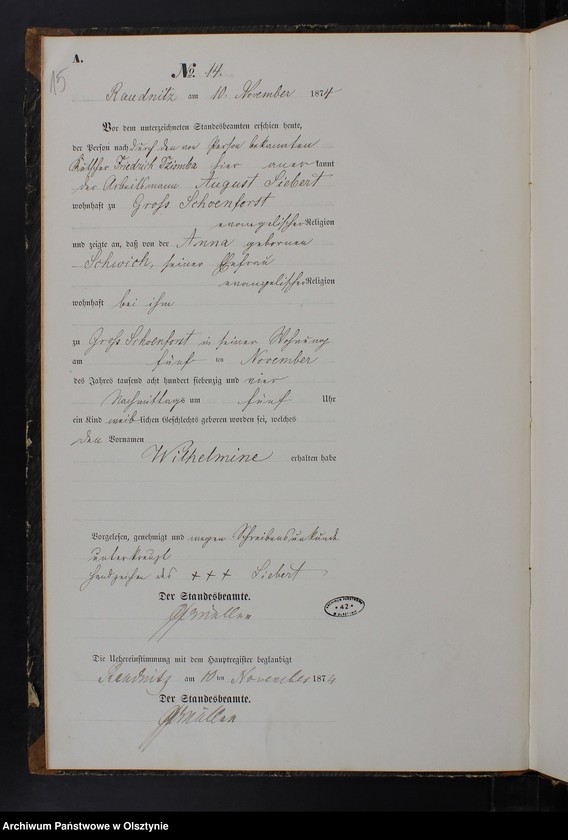 A.
15
No. 14.
Raudnitz am 10. November 1874
Vor dem unterzeichneten Standesbeamten erschien heute,
der Person nach durch den von Person bekannten
Kutscher Friedrich Dziomba hier anerkannt
der Arbeitsmann August Siebert
wohnhaft zu Gross Schoenforst
evangelischer Religion
und zeigte an, daß von der Anna gebornen
Schwich, seiner Ehefrau
evangelischer Religion
wohnhaft bei ihm
zu Gross Schoenforst in seiner Wohnung
am fünf ten November
des Jahres tausend acht hundert siebenzig und vier
Nachmittags um fünf Uhr
ein Kind weiblichen Geschlechts geboren worden sei, welches
den Vornamen
Wilhelmine erhalten habe
Vorgelesen, genehmigt und wegen Schreibensunkunde
unterkreuzt
Handzeichen des + + + Siebert
Der Standesbeamte.
Müller
ARCHIWUM PAŃSTWOWE
* 42 *
W OLSZTYNIE
Die Uebereinstimmung mit dem Hauptregister beglaubigt
Raudnitz am 10 ten November 1874
Der Standesbeamte.
Müller
Archiwum Państwowe w Olsztynie